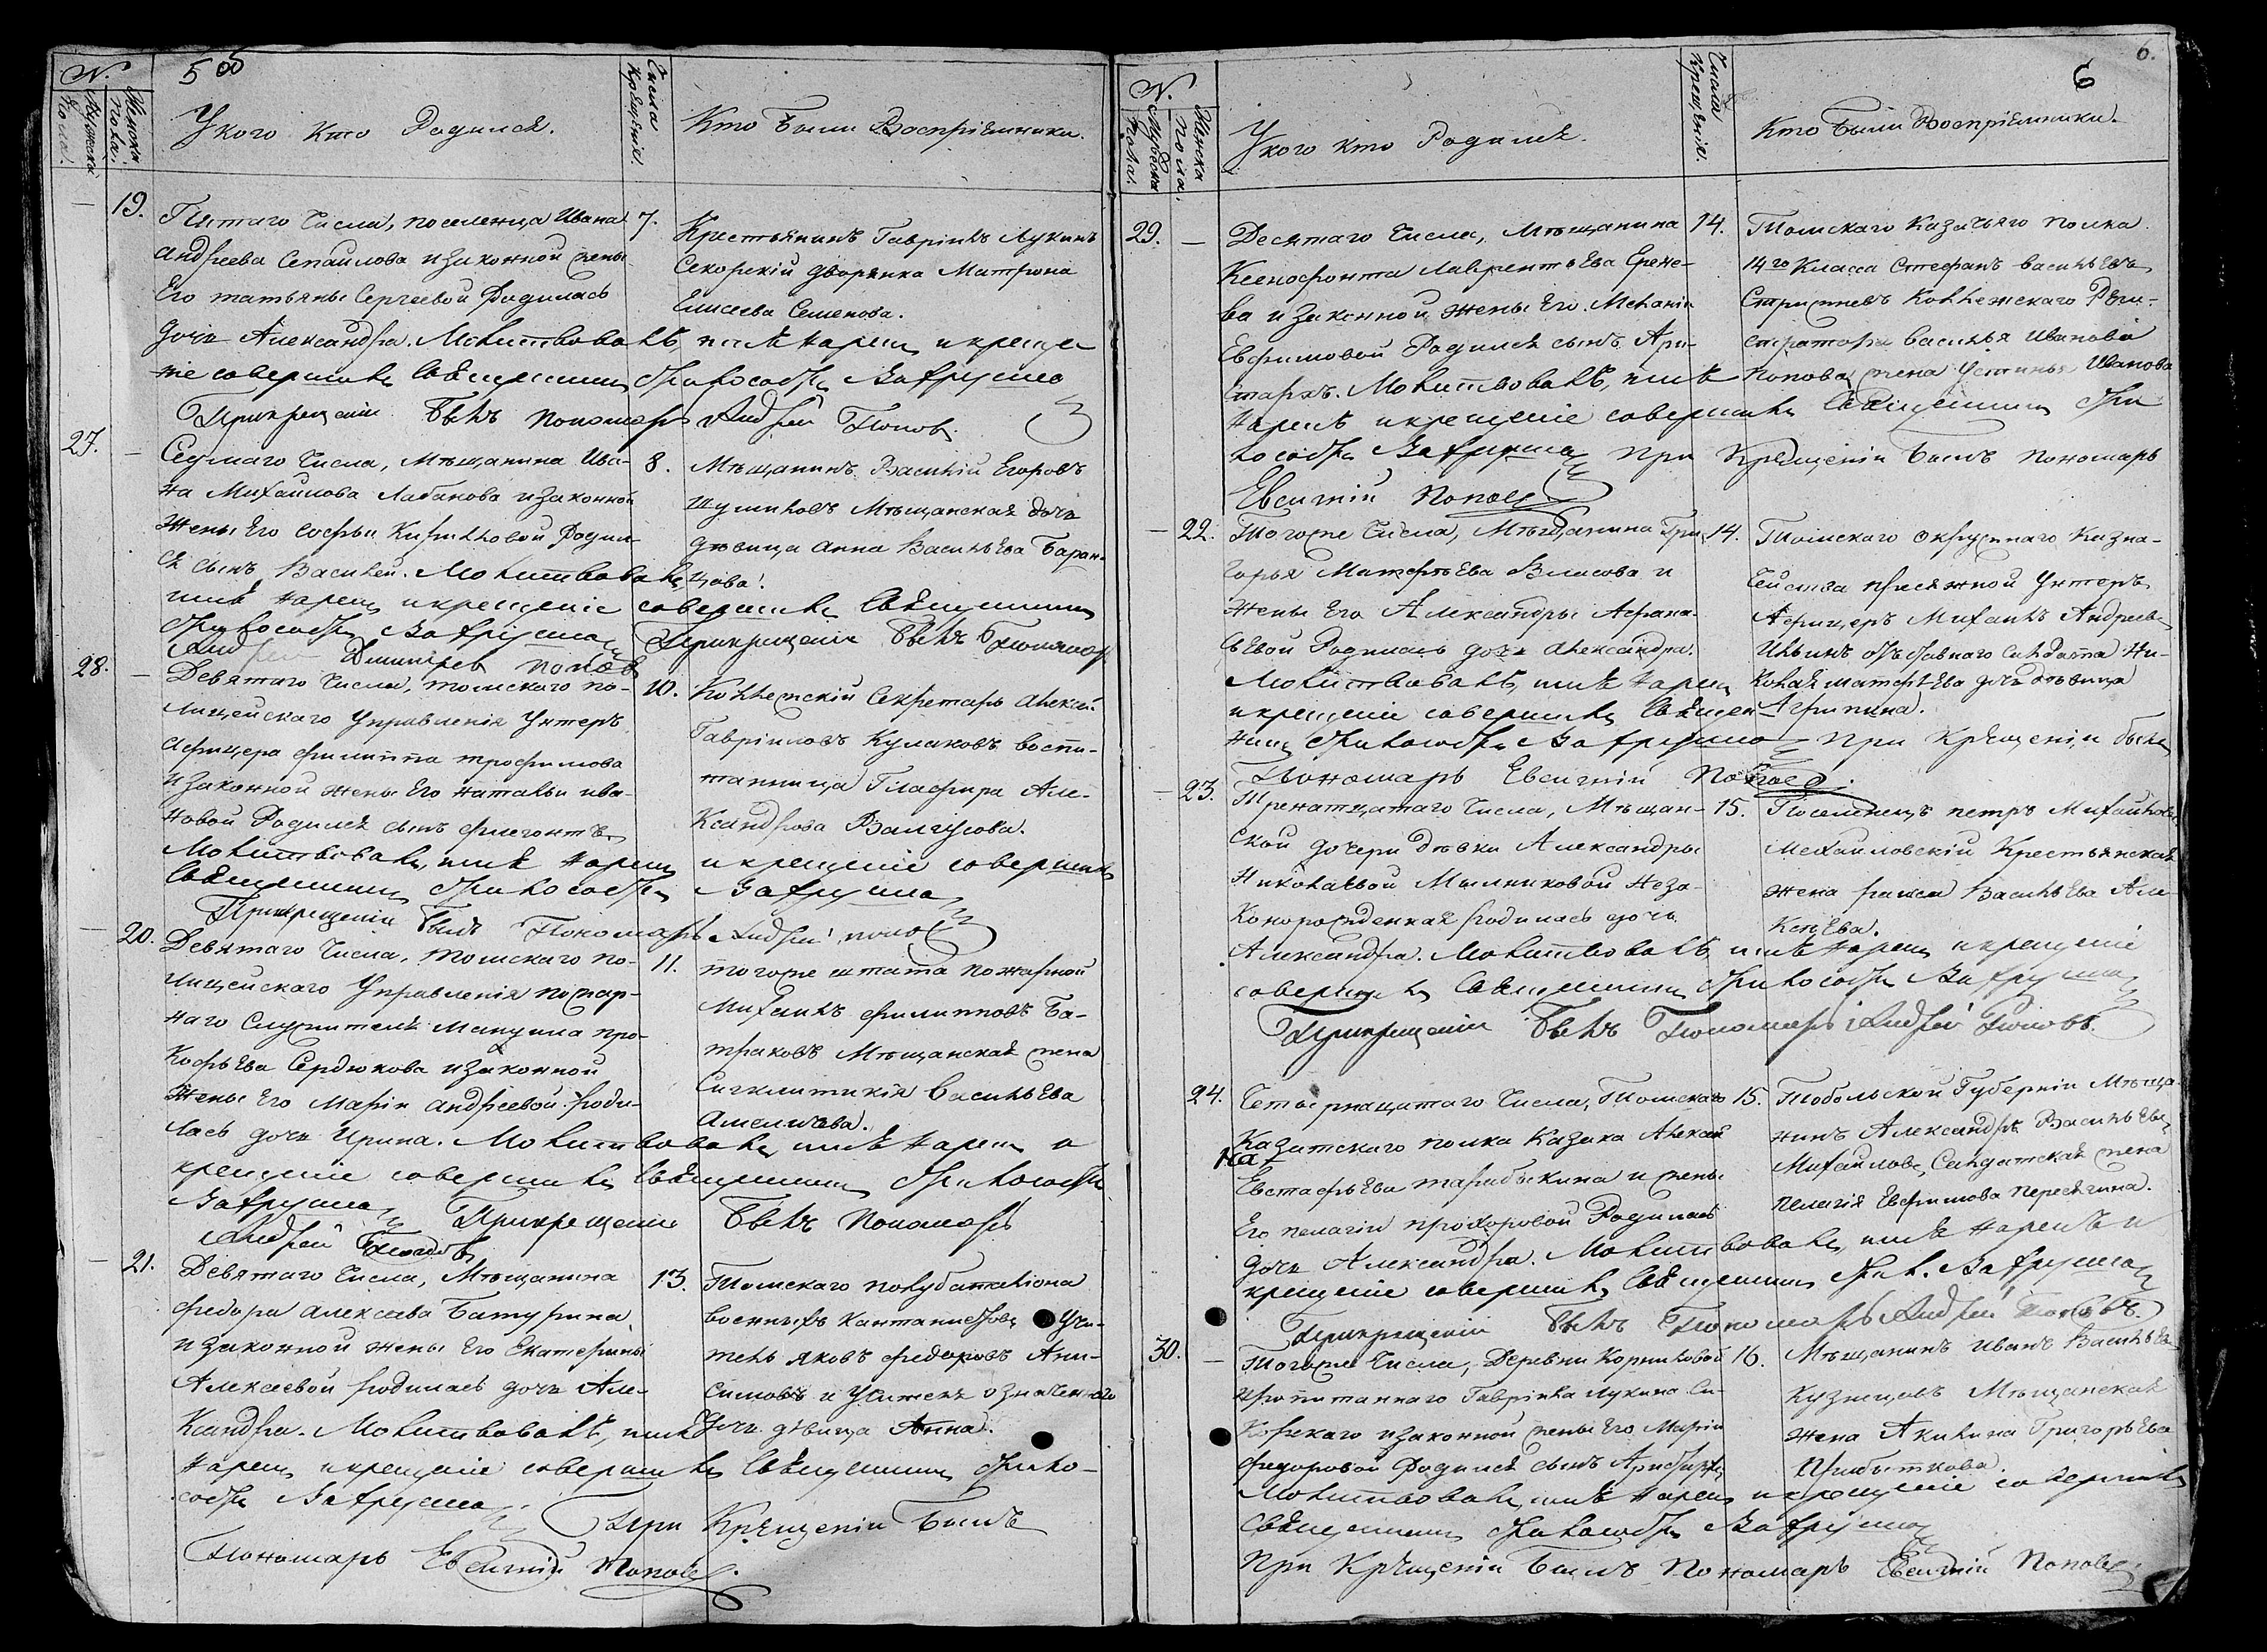 5
N.
Мужеска пола.
Женска пола.
У кого кто Родился.
Числа Крещенія.
Кто были Воспріемники.
19.
Пятаго Числа, поселенца Ивана
Андреева и законной жены
Его татьяны Сергеевой Родилась
дочь Александра. Молитвовалъ, имя нарекъ и креще-
ніе совершилъ Священникъ Вахрушевъ
При крещеніи былъ пономарь Андрей Поповъ.
7.
Крестьянинъ Гавріилъ Лукинъ
Сикорскій дворянка Матрона
Елисеева Семенова.
27.
Седмаго Числа, Мѣщанина Ива-
на Михайлова Лабанова и законной
Жены Его софьи Кириловой Родил-
ся сынъ Василей. Молитвовалъ,
имя нарекъ и крещеніе совершилъ Священникъ
Вахрушевъ При крещеніи былъ Пономарь
Андрей Поповъ
8.
Мѣщанинъ Василій Егоровъ
Мѣщанская дочь
дѣвица анна Васильева Баран-
цова.
28.
Девятаго Числа, томскаго по-
лицейскаго Управленія Унтеръ
Афицера филиппа трофимова
и законной жены Его натальи ива-
новой Родился сынъ флегонтъ
Молитвовалъ, имя нарекъ и крещеніе совершилъ
Священникъ Вахрушевъ
При крещеніи былъ Пономарь Андрей поповъ
10.
Коллежскій Секретарь Алексей
Гавриловъ Кулаковъ воспи-
танница Глафира Але-
ксандрова
20.
Девятаго Числа, томскаго по-
лицейскаго Управленія пожар-
наго Служителя Мануила про-
кофьева Сердюкова и законной
Жены Его Маріи андреевой роди-
лась дочь Ирина. Молитвовалъ, имя нарекъ и
крещеніе совершилъ Священникъ
Вахрушевъ При крещеніи былъ пономарь
Андрей Поповъ
11.
тогоже штата пожарной
Михаилъ филипповъ Ба-
траковъ Мѣщанская жена
Сигклитикія Васильева
21.
Девятаго Числа, Мѣщанина
федора алексеева Батурина,
и законной жены Его Екатерины
Алексеевой родилась дочь Але-
ксандра. Молитвовалъ, имя
нарекъ и крещеніе совершилъ Священникъ
Вахрушевъ При Крещеніи былъ
Пономарь Евсигній Поповъ.
13.
Томскаго полубаталіона
военныхъ кантанистовъ Учи-
тель яковъ федоровъ Ани-
симовъ и Учителя означеннаго
дочь дѣвица Анна.
6.
6
N.
Мужеска пола.
Женска пола.
У кого кто Родился.
Числа Крещенія.
Кто были Воспріемники.
29.
Десятаго Числа, Мѣщанина
Ксенофонта Лаврентьева Ерене-
ва и законной жены Его Меланіи
Евфимовой Родился сынъ Ари-
стархъ. Молитвовалъ, имя
нарекъ и крещеніе совершилъ Священникъ
Вахрушевъ при Крещеніи былъ пономарь
Евсигній поповъ
14.
Томскаго Казачьяго полка
14го Класса Стефанъ васильевъ
Коллежскаго Реги-
стратора василья Иванова
попова жена Устинья Иванова
22.
Тогоже Числа, Мѣщанина Гри-
горья Матфеева Власова и
жены Его Александры Афана-
сьевой Родилась дочь Александра.
Молитвовалъ, имя нарекъ
и крещеніе совершилъ Священ-
никъ Вахрушевъ При Крещеніи былъ
Пономарь Евсигній Поповъ.
14.
Томскаго окружнаго Казна-
чейства присяжной Унтеръ
Афицеръ Михаилъ Андреевъ
Ильинъ отставнаго салдата Ни-
колая матфеева дочь дѣвица
Агрипина.
23.
Тренатцатаго Числа, Мѣщан-
ской дочери дѣвки Александры
Николаевой Мыльниковой Неза-
конорожденная родилась дочь
Александра. Молитвовалъ, имя нарекъ и крещеніе
совершилъ Священникъ Вахрушевъ
При крещеніи былъ Пономарь Андрей Поповъ.
15.
Поселенецъ петръ Михайловъ
Михайловскій Крестьянская
жена раиса Васильева Але-
ксеева.
24.
Четырнацатаго Числа, Томскаго
Казачьяго полка Казака Алексея
Евстафьева и жены
Его пелагіи прохоровой Родилась
дочь Александра. Молитвовалъ, имя нарекъ и
крещеніе совершилъ Священникъ Вахрушевъ
При крещеніи былъ Пономарь Андрей Поповъ.
15.
Тобольской Губерніи Мѣща-
нинъ Александръ Васильевъ
Михайловъ, Салдатская жена
пелагія Евфимова пересягина.
30.
Тогоже Числа, Деревни Корниловой
пропитаннаго Гавріила Лукина Си-
корскаго и законной жены Его Маріи
федоровой Родился сынъ
Молитвовалъ, имя нарекъ и крещеніе совершилъ
Священникъ Вахрушевъ
При Крещеніи былъ Пономарь Евсигній Поповъ
16.
Мѣщанинъ иванъ Васильевъ
Кузнецовъ Мѣщанская
жена Акилина Григорьева
Прибыткова.